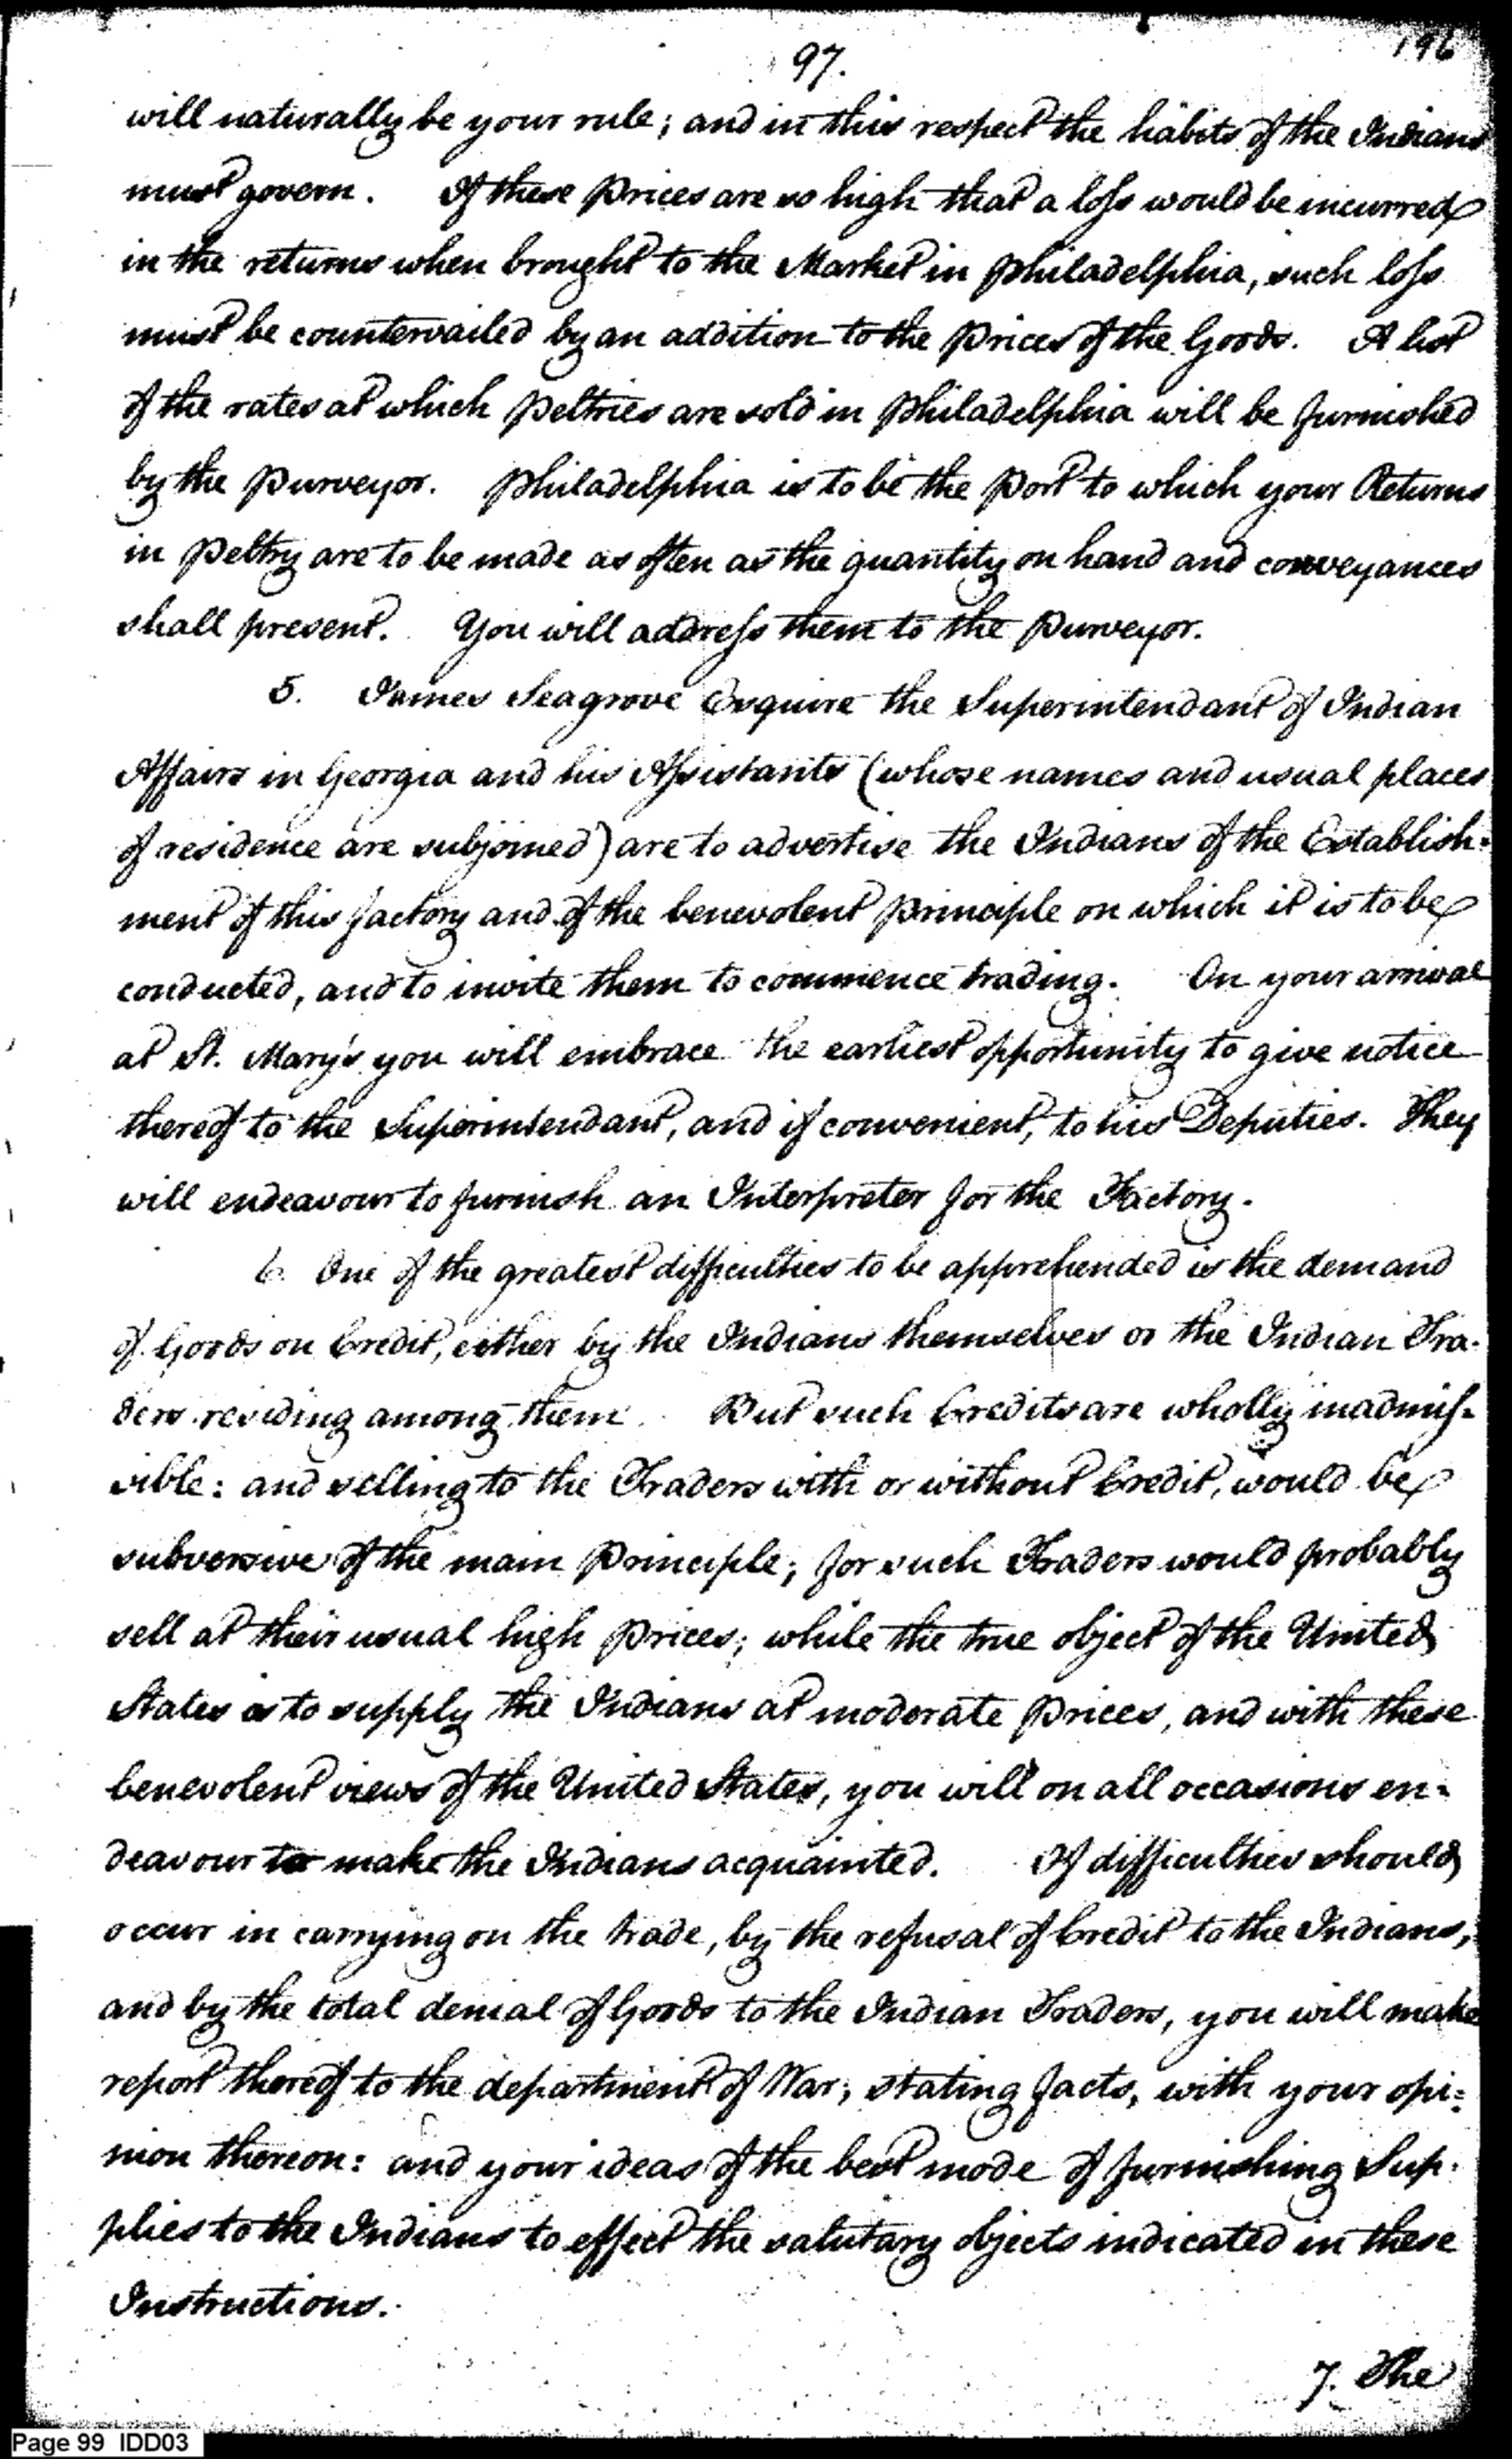 97.
196
will naturally be your rule; and in this respect the habits of the Indians
must govern. If these prices are so high that a loss would be incurred
in the returns when brought to the Market in Philadelphia, such loss
must be countervailed by an addition to the prices of the Goods. A list
of the rates at which Peltries are sold in Philadelphia will be furnished
by the Purveyor. Philadelphia is to be the Port to which your Returns
in Peltry are to be made as often as the quantity on hand and conveyances
shall present. You will address them to the Purveyor.
5. James Seagrove Esquire the Superintendant of Indian
Affairs in Georgia and his Assistants (whose names and usual places
of residence are subjoined) are to advertise the Indians of the Establish-
ment of this factory and of the benevolent principle on which it is to be
conducted, and to invite them to commence trading. On your arrival
at St. Mary's you will embrace the earliest opportunity to give notice
thereof to the Superintendant, and if convenient, to his Deputies. They
will endeavour to furnish an Interpreter for the Factory.
6. One of the greatest difficulties to be apprehended is the demand
of Goods on Credit, either by the Indians themselves or the Indian Tra-
ders residing among them. But such Credits are wholly inadmis-
sible: and selling to the Traders with or without Credit, would be
subversive of the main Principle; for such Traders would probably
sell at their usual high prices; while the true object of the United
States is to supply the Indians at moderate prices, and with these
benevolent views of the United States, you will on all occasions en-
deavour to make the Indians acquainted. If difficulties should
occur in carrying on the trade, by the refusal of Credit to the Indians,
and by the total denial of Goods to the Indian Traders, you will make
report thereof to the department of War, stating facts, with your opi-
nion thereon: and your ideas of the best mode of furnishing Sup-
plies to the Indians to effect the salutary objects indicated in these
Instructions.
7. The
Page 99 IDD03